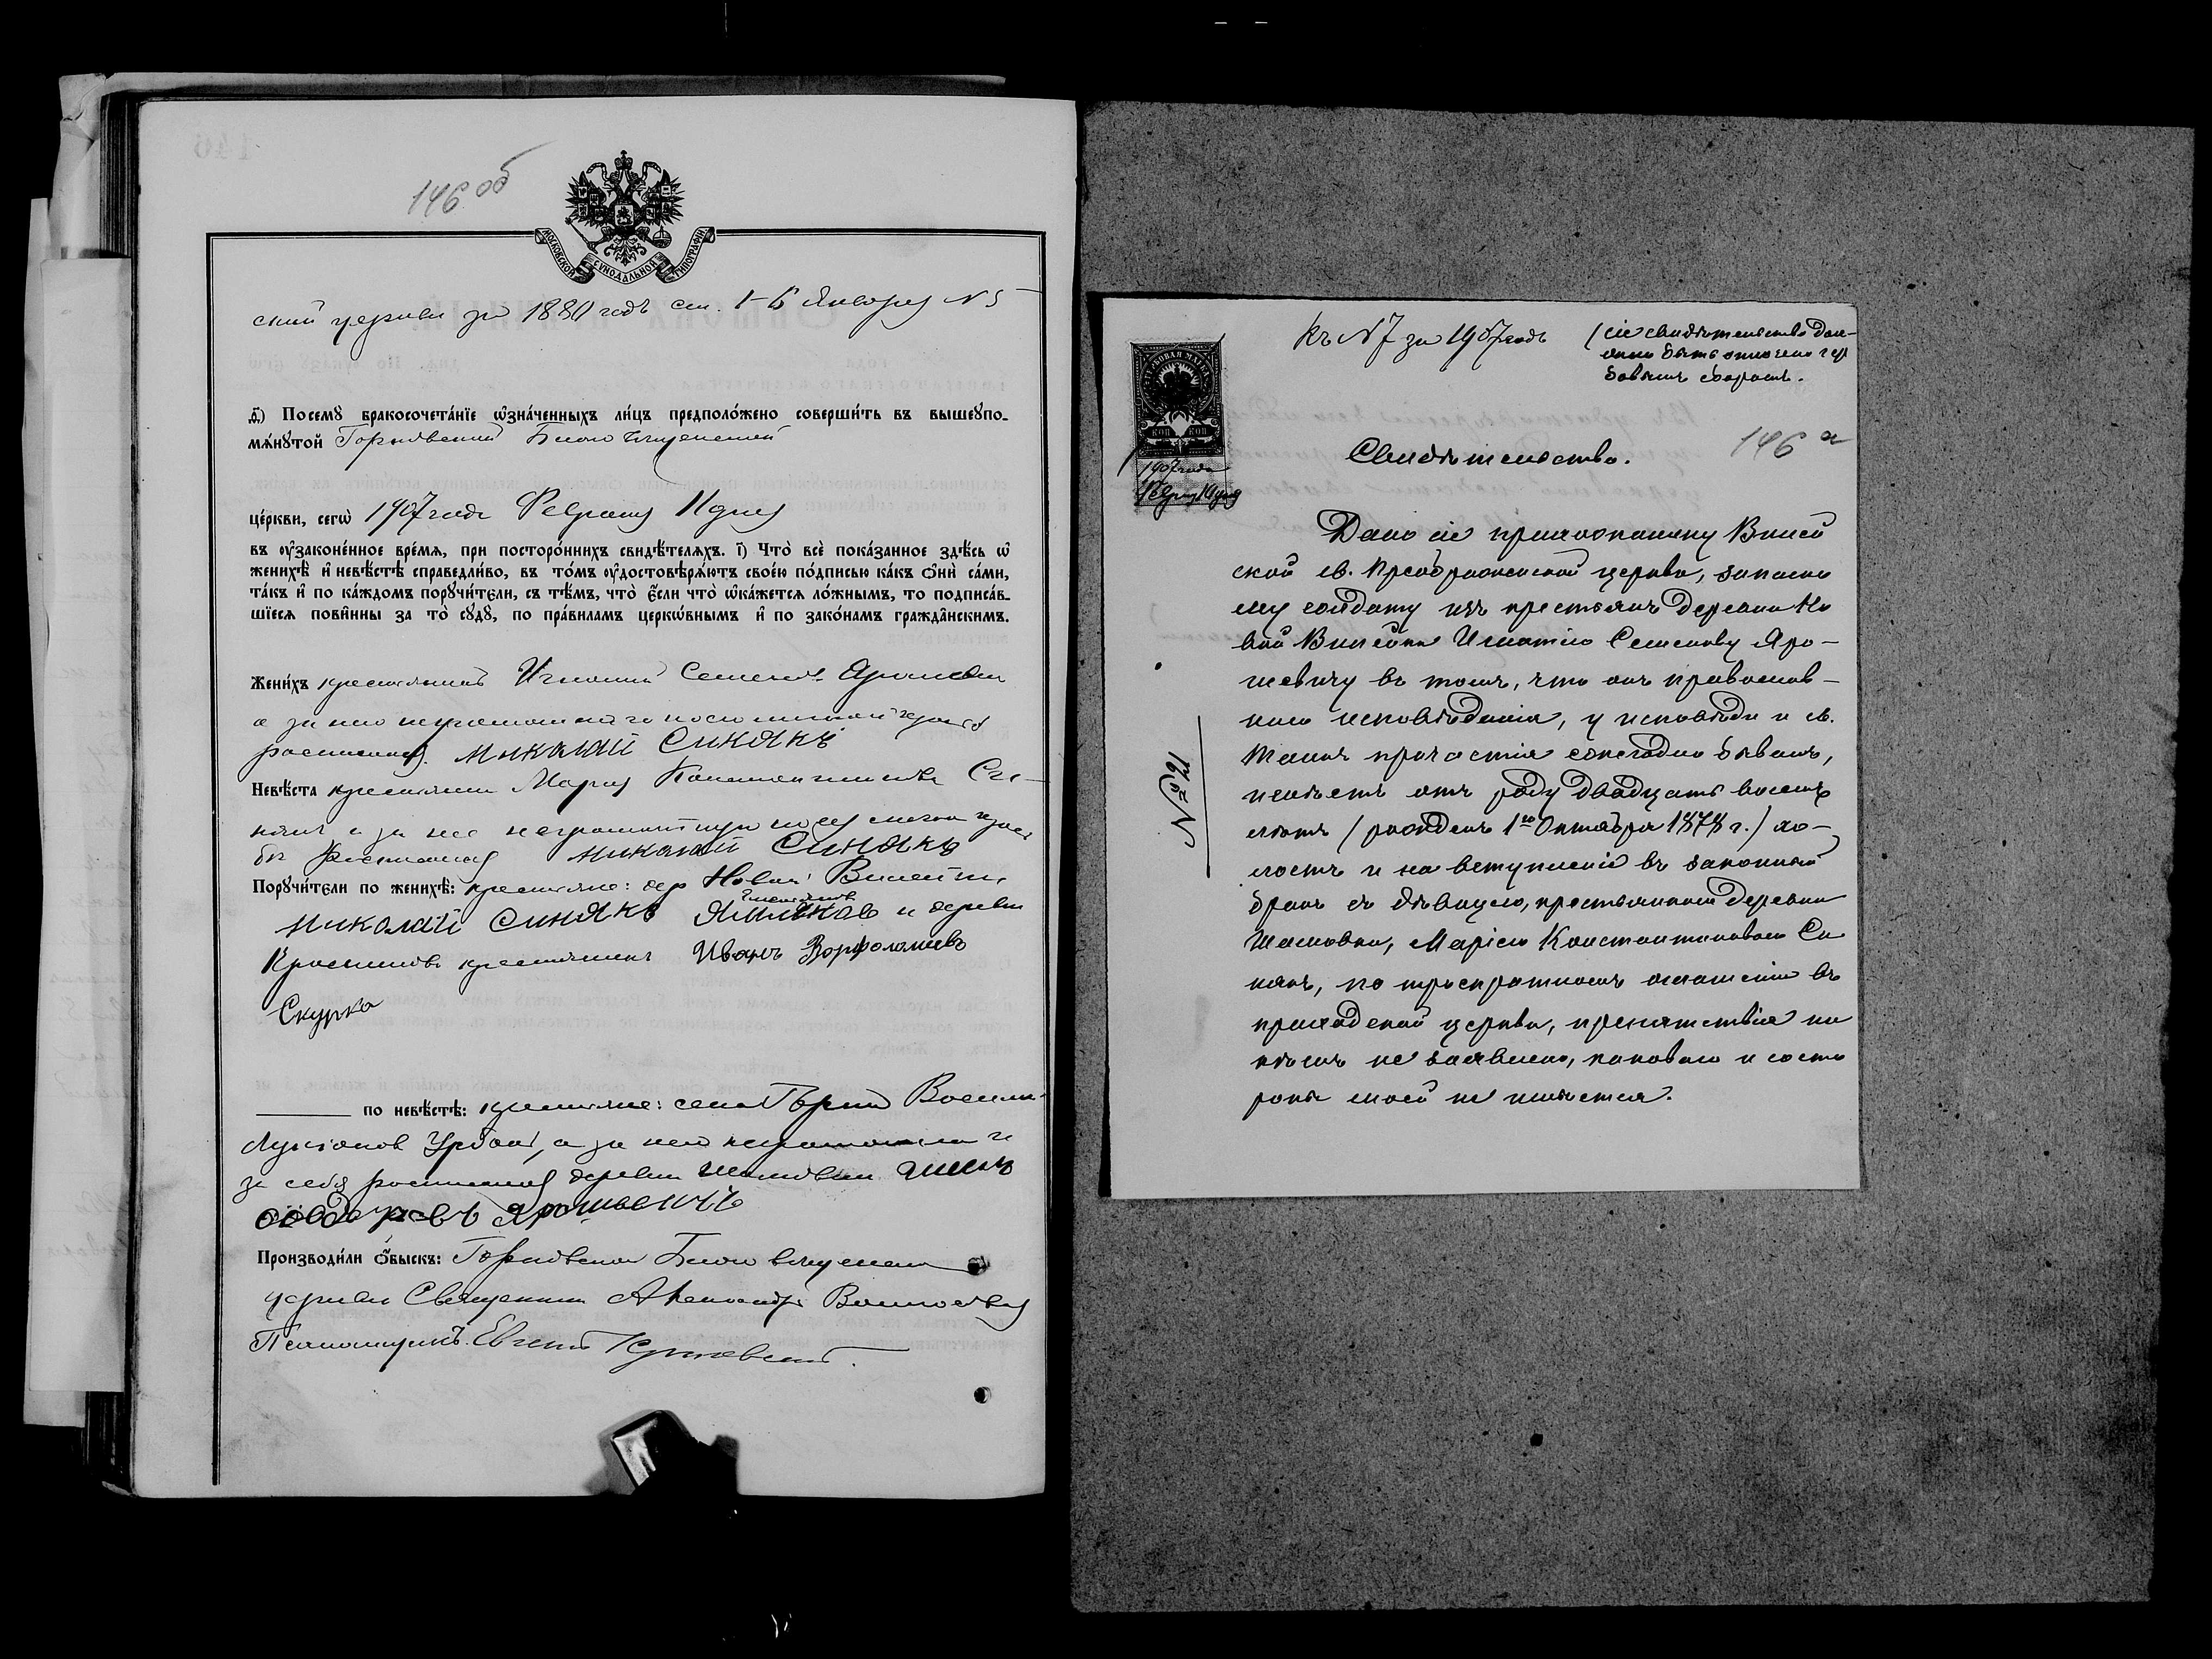 146 об
МОСКОВСКОЙ СУНОДАЛЬНОЙ ТИПОГРАФІИ
ской церкви за 1880 годъ ст. 1-б Января N 5
д҃) Посемꙋ бракосочета́нїе ѡ҆зна́ченныхъ ли́цъ предполо́жено соверши́ть въ вышеꙋпо-
мѧ́нꙋтой Горковской Благовѣщенской
це́ркви, сегѡ̀ 1907 года Февраля 11 дня
въ ᲂу҆зако́не́нное вре́мѧ, при посторо́ннихъ свидѣ́телѧхъ. і҃) Что̀ всѐ пока́занное здѣ́сь ѡ҆
женихѣ̀ и҆ невѣ́стѣ справедли́во, въ то́мъ ᲂу҆достовѣрѧ́ютъ свое́ю по́дписью ка́къ ѻ҆нѝ са́ми,
та́къ и҆ по ка́ждомъ порꙋчи́тели, съ тѣ́мъ, что̀ є҆́сли что̀ ѡ҆ка́жетсѧ ло́жнымъ, то подписа́в-
шїесѧ пови́нны за то̀ сꙋдꙋ̀, по пра́виламъ церкѡ́внымъ и҆ по зако́намъ гражда́нскимъ.
Жени́хъ крестьянинъ Игнатій Семеновъ Ярошевичъ
а за него неграмотнаго по его личной просьбѣ
росписался Николай Синякъ
Невѣ́ста крестьянка Марія Константинова Си-
някъ а за нее неграмотную по ея личной прось
бѣ росписался Николай Синякъ
Порꙋчи́тели по женихѣ̀: крестьяне: дер. Новой Вилейки
Николай Синякъ и деревни
крестьянинъ Иванъ Ворфоломиевъ
Скурко
по невѣ́стѣ: крестьяне: села Горки Василій
Урбанъ, а за него неграмотнаго и
за себя росписался деревни Шашовки
Ярошевичъ
Производи́ли ѻ҆́быскъ: Горковской Благовѣщенской
церкви Священникъ Александръ
Псаломщикъ Евгеній
Къ N 7 за 1907 годъ (сіе свидѣтельство дол-
жно быть оплочено гер
бовымъ сборомъ.
ГЕРБОВАЯ МАРКА
КОП КОП
1907 года
Февраля 10 дня
146 а
Свидѣтельство.
N 21
Дано сіе прихожанину Вилей
ской св. Преображенской церкви, запасно
му солдату изъ крестьянъ деревни Но
вой Вилейки Игнатію Семенову Яро-
шевичу въ томъ, что онъ православ-
наго исповѣданія, у исповѣди и св.
Таинъ причастія ежегодно бываетъ,
имѣетъ отъ роду двадцать восемь
лѣтъ (рожденъ 1го Октября 1878 г.) хо-
лостъ и на вступленіе въ законный
бракъ съ дѣвицею, крестьянкой деревни
Шашовки, Маріею Константиновою Си
някъ, по троекратномъ оглашеніи въ
приходской церкви, препятствія ни
кѣмъ не заявлено, каковаго и со сто
роны моей не имѣется.